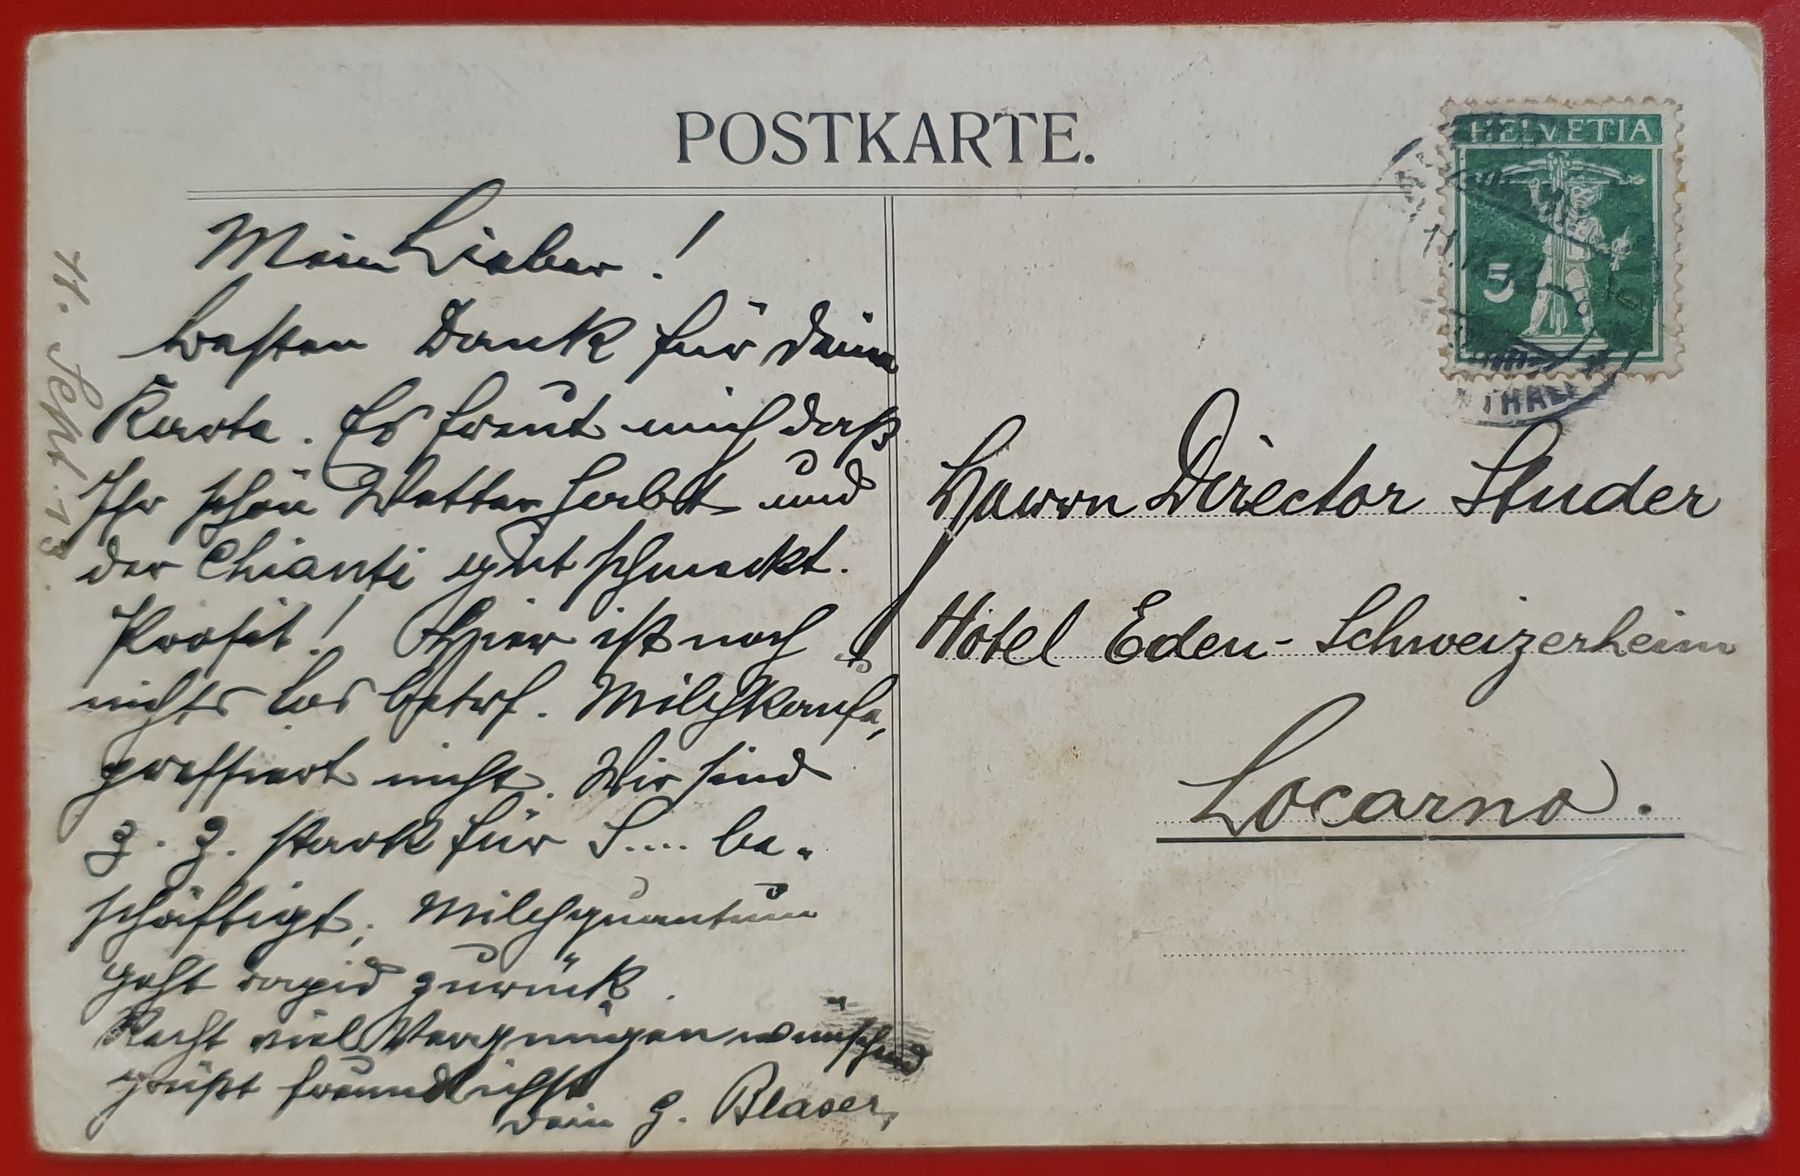 POSTKARTE.
HELVETIA
5
11. Sept. 13
Mein Lieber!
besten Dank für Deine
Karte. Es freut mich daß
Ihr schön Wetter habt und
der Chianti gut schmeckt.
Prosit! Hier ist noch
nichts los betrf. Milchkäufe,
pressiert nicht. Wir sind
z. Z. stark für S.... be-
schäftigt; Milchquantum
geht rapid zurück.
Recht viel Vergnügen wünschend
grüßt freundlichst
Dein G. Blaser,
Herrn Director Studer
Hotel Eden-Schweizerheim
Locarno.